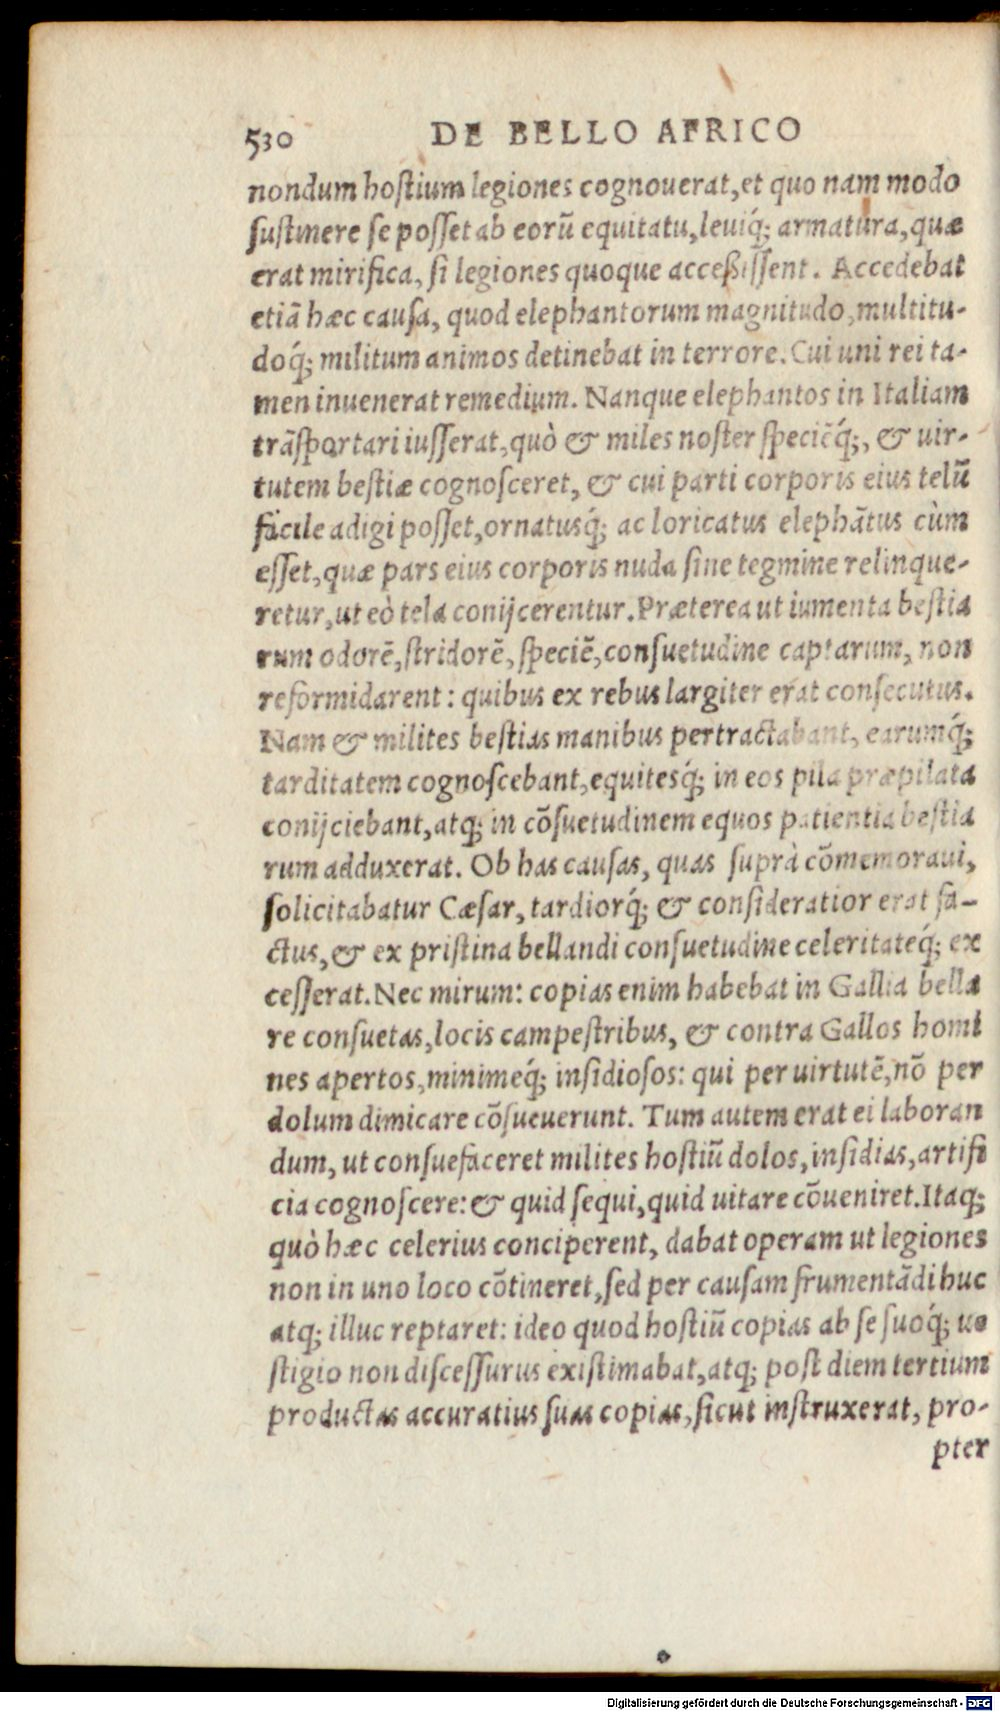 530 DE BELLO AFRICO
nondum hoſtium legiones cognouerat, et quo nam modo
ſuſtinere ſe poſſet ab eorũ equitatu, leuiq́; armatura, quæ
erat mirifica, ſi legiones quoque acceßiſſent. Accedebat
etiã hæc cauſa, quod elephantorum magnitudo, multitu-
doq́; militum animos detinebat in terrore. Cui uni rei ta-
men inuenerat remedium. Nanque elephantos in Italiam
trãſportari iuſſerat, quò & miles noſter ſpeciẽq́;, & uir-
tutem beſtiæ cognoſceret, & cui parti corporis eius telũ
facile adigi poſſet, ornatusq́; ac loricatus elephãtus cùm
eſſet, quæ pars eius corporis nuda ſine tegmine relinque-
retur, ut eò tela conijcerentur. Præterea ut iumenta beſtia
rum odorẽ, ſtridorẽ, ſpeciẽ, conſuetudine captarum, non
reformidarent: quibus ex rebus largiter erat conſecutus.
Nam & milites beſtias manibus pertractabant, earumq́;
tarditatem cognoſcebant, equitesq́; in eos pila præpilata
conijciebant, atq; in cõſuetudinem equos patientia beſtia
rum adduxerat. Ob has cauſas, quas ſuprà cõmemoraui,
ſolicitabatur Cæſar, tardiorq́; & conſideratior erat fa-
ctus, & ex priſtina bellandi conſuetudine celeritateq́; ex
ceſſerat. Nec mirum: copias enim habebat in Gallia bella
re conſuetas, locis campeſtribus, & contra Gallos homi
nes apertos, minimeq́; inſidioſos: qui per uirtutẽ, nõ per
dolum dimicare cõſueuerunt. Tum autem erat ei laboran
dum, ut conſuefaceret milites hoſtiũ dolos, inſidias, artifi
cia cognoſcere: & quid ſequi, quid uitare cõueniret. Itaq;
quò hæc celerius conciperent, dabat operam ut legiones
non in uno loco cõtineret, ſed per cauſam frumentãdi huc
atq; illuc reptaret: ideo quod hoſtiũ copias ab ſe ſuoq́; ue
ſtigio non diſceſſurus exiſtimabat, atq; poſt diem tertium
productas accuratius ſuas copias, ſicut inſtruxerat, pro-
pter
Digitalisierung gefördert durch die Deutsche Forschungsgemeinschaft - DFG